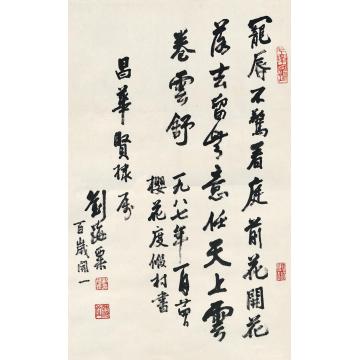 寵辱不驚看庭前花開花
落去留無意任天上雲
卷雲舒
一九八七年
櫻花度假村書
昌華賢棣屬
劉海粟
百歲開一